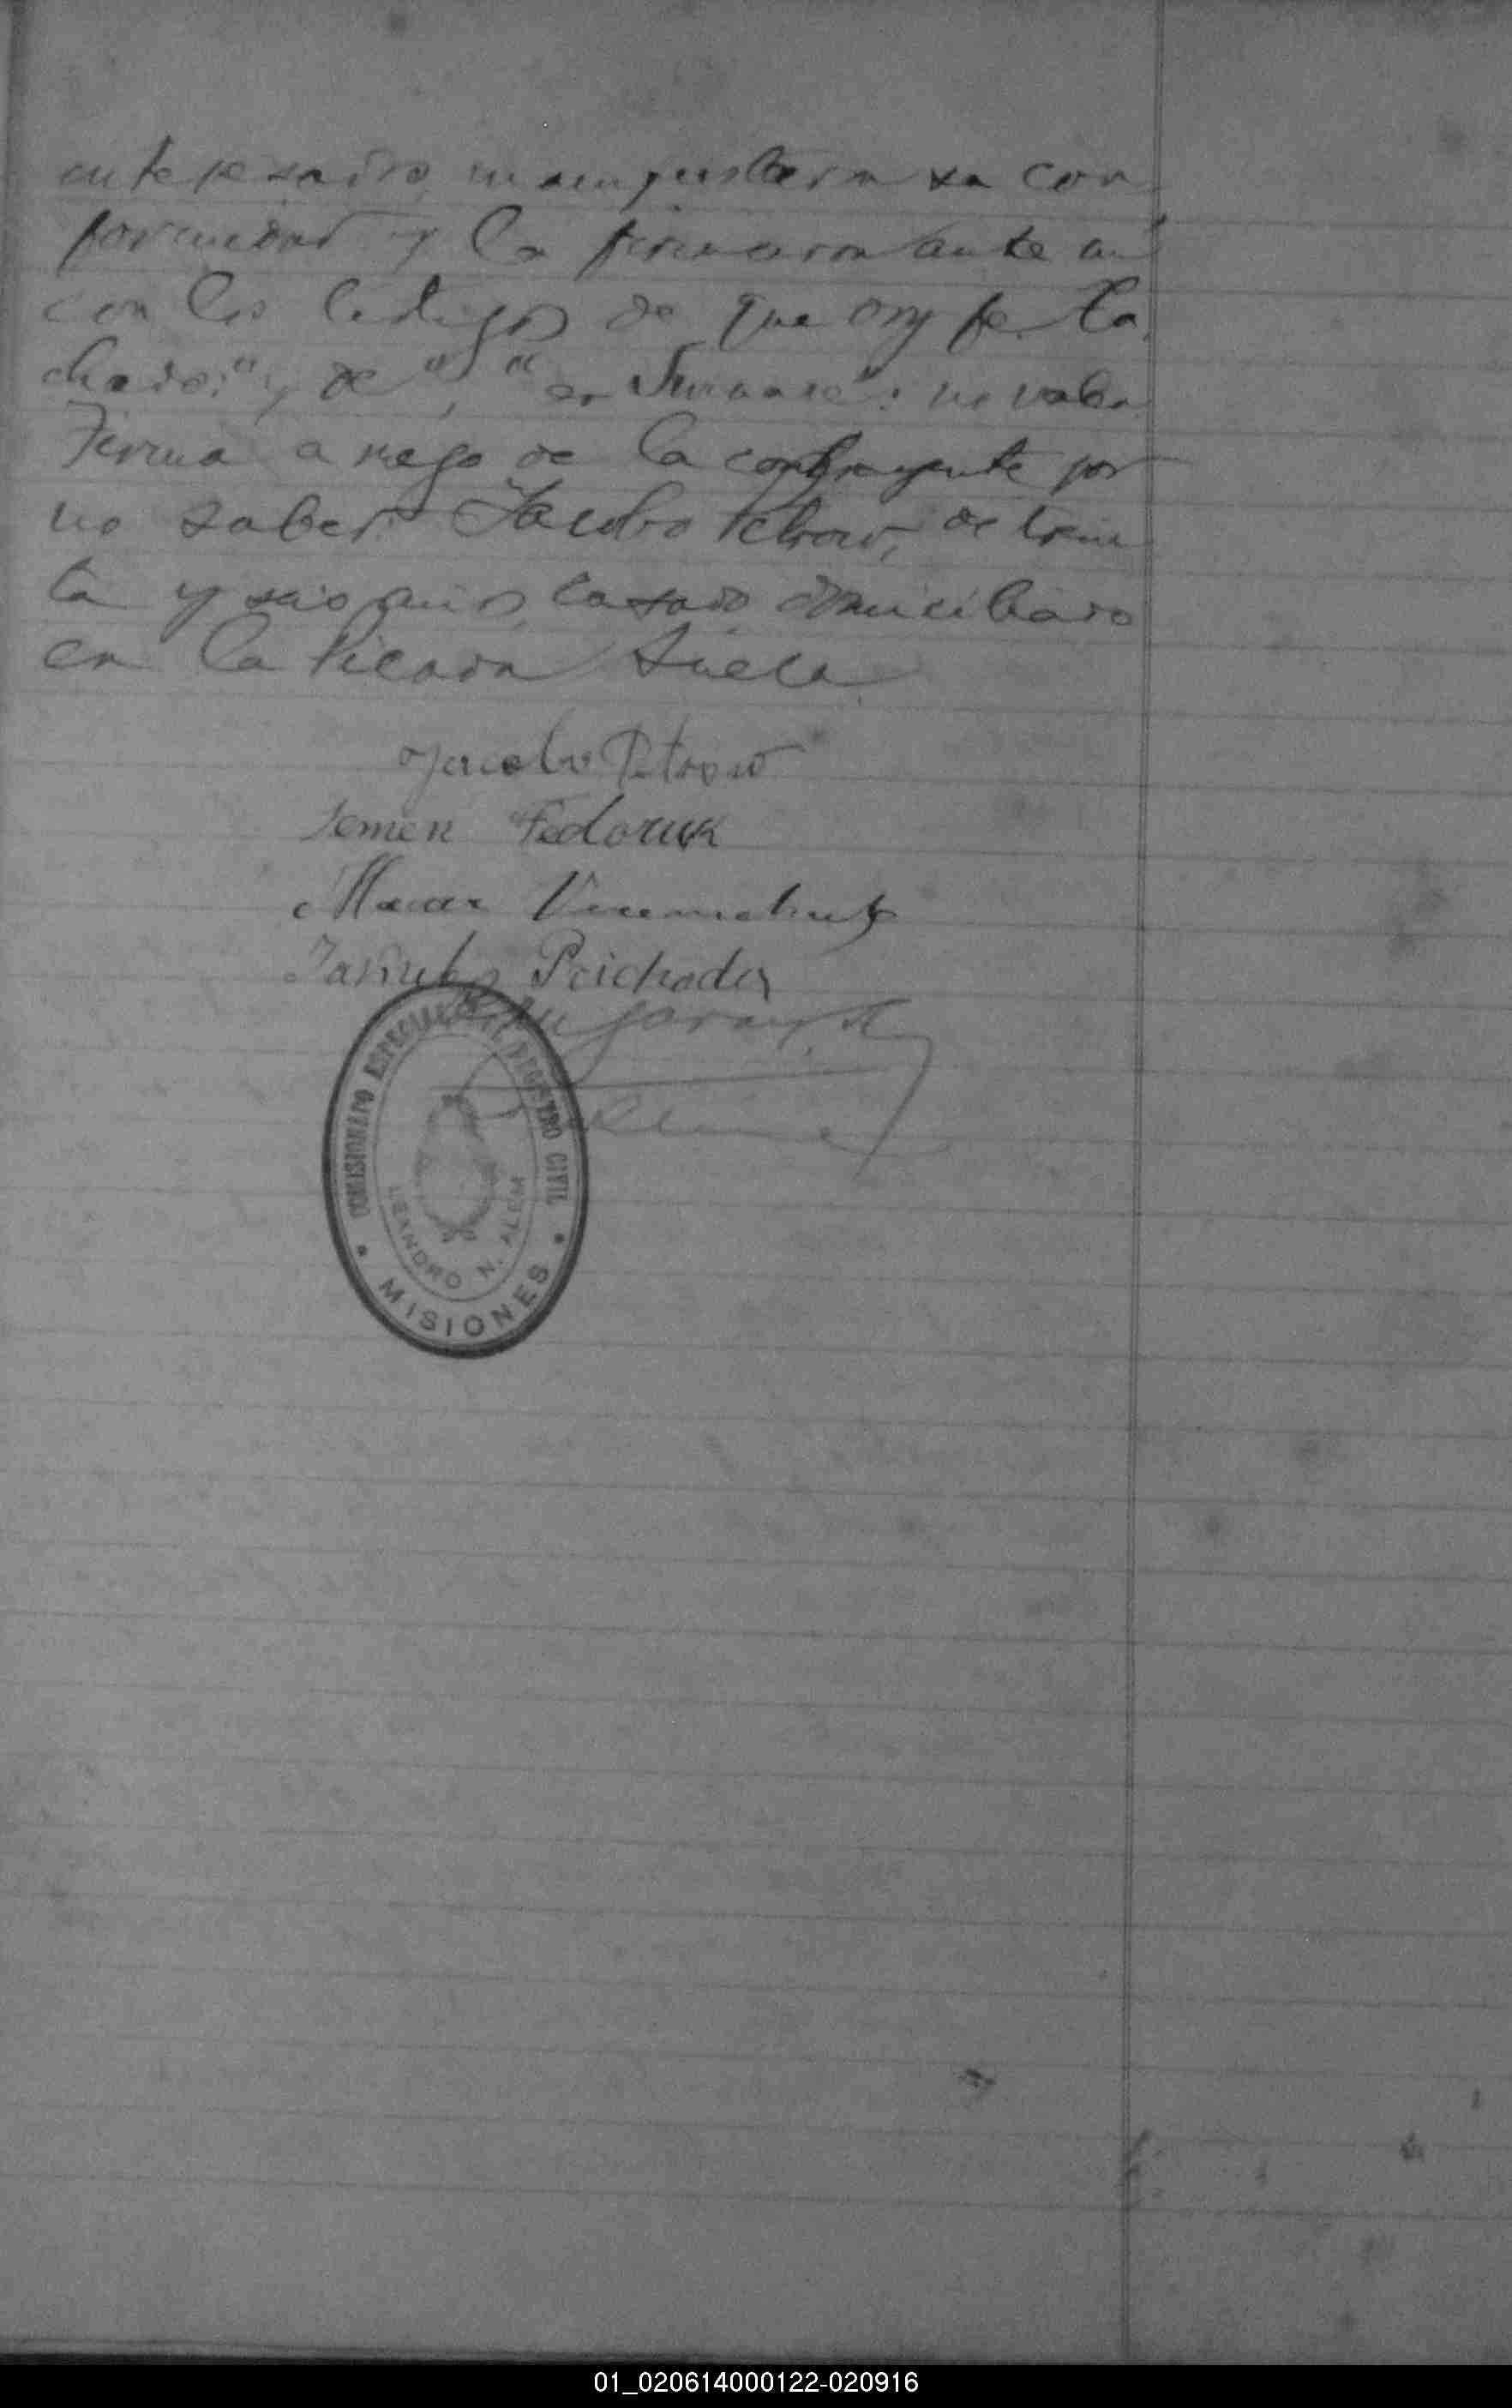 interesados manifestaron su con
formidad y la firmaron ante mi
con los testigos de que doy fe. Ta
chado: " y de ", " en : no vale.
Firma a ruego de la contrayente por
no saber Jacobo Petrow, de trein
ta y seis años, casado, domiciliado
en la Picada Sueca.
Jacobo Petrow
Semen Fedoruk
Prichoda
COMISIONADO ESPECIAL DEL REGISTRO CIVIL
LEANDRO N. ALEM
MISIONES
01_020614000122-020916